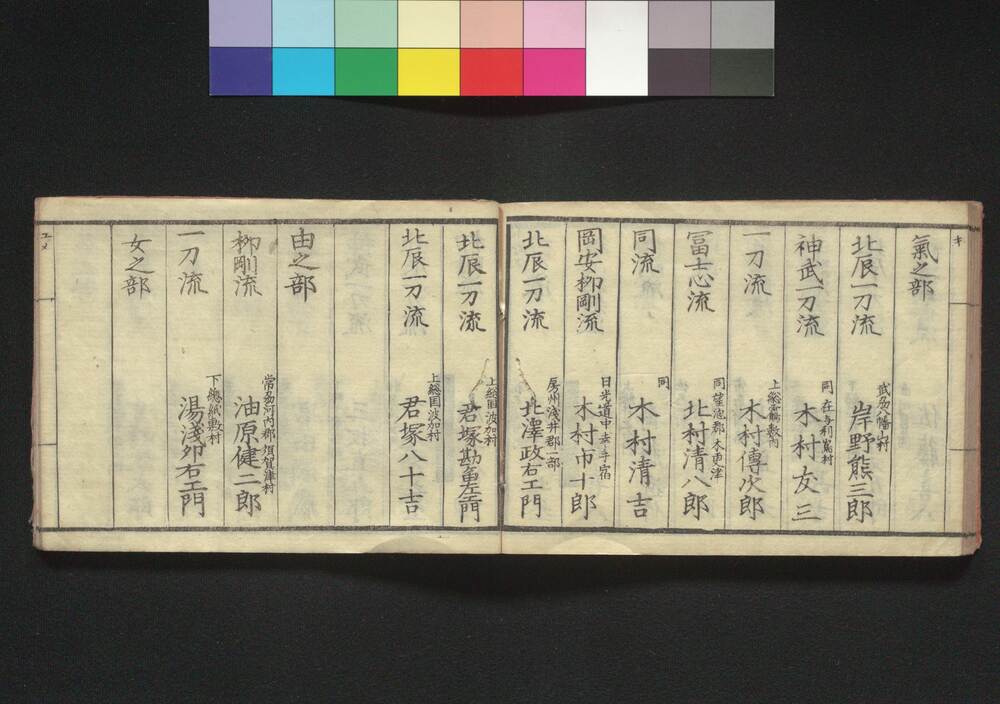 キ
氣之部
北辰一刀流
武刕八幡山村
岸野熊三郎
神武一刀流
同
木村友三
一刀流
木村傳次郎
冨士心流
同望陀郡木更津
北村清八郎
同流
同
木村清吉
岡安柳剛流
日光道中幸手宿
木村市十郎
北辰一刀流
北澤政右エ門
北辰一刀流
上総国波加村
北辰一刀流
上総国波加村
君塚八十吉
由之部
柳剛流
常刕河内郡須賀津村
油原健二郎
一刀流
湯淺夘右エ門
女之部
ユメ